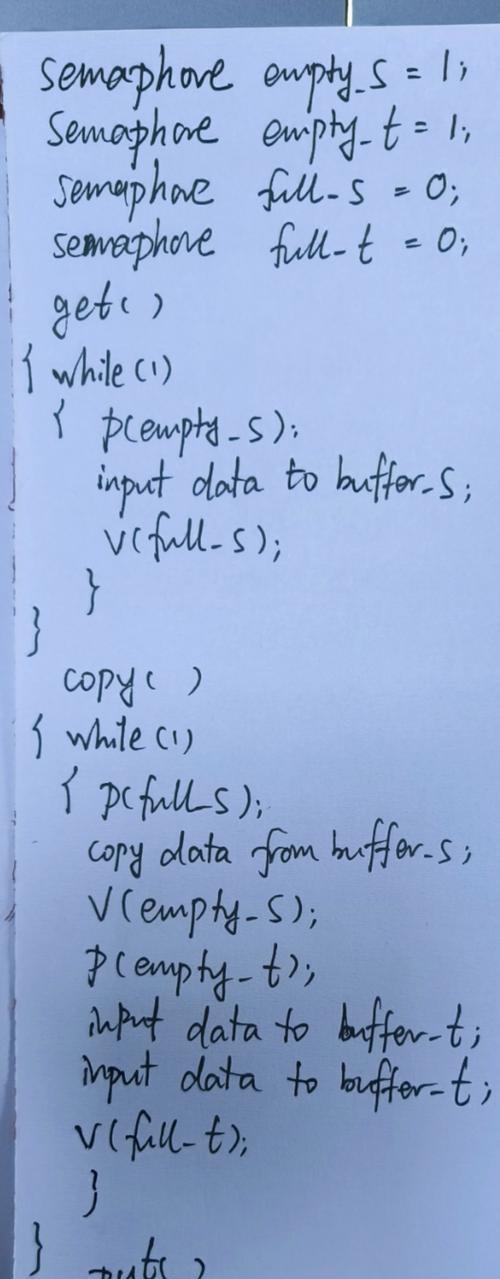 semaphore empty_s = 1;
semaphore empty_t = 1;
semaphore full_s = 0;
semaphore full_t = 0;
get( )
{ while(1)
{ p(empty_s);
input data to buffer_s;
v(full_s);
}
}
copy( )
{ while(1)
{ p(full_s);
copy data from buffer_s;
V(empty_s);
P(empty_t);
input data to buffer_t;
input data to buffer_t;
v(full_t);
}
}
put( )